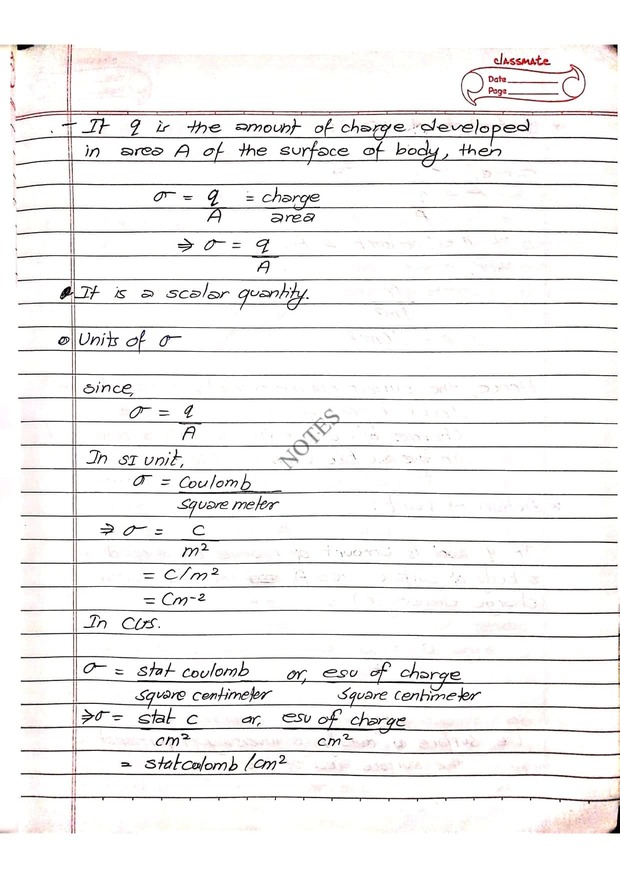 classmate
Date
Page
- If q is the amount of charge developed
in area A of the surface of body, then
σ = q/A = charge/area
⇒ σ = q/A
It is a scalar quantity.
Units of σ
since,
σ = q/A
NOTES
In SI unit,
σ = Coulomb/square meter
⇒ σ = C/m²
= C/m²
= Cm⁻²
In CGS.
σ = stat coulomb/square centimeter or, esu of charge/square centimeter
⇒ σ = stat C/cm² or, esu of charge/cm²
= statcolomb/cm²